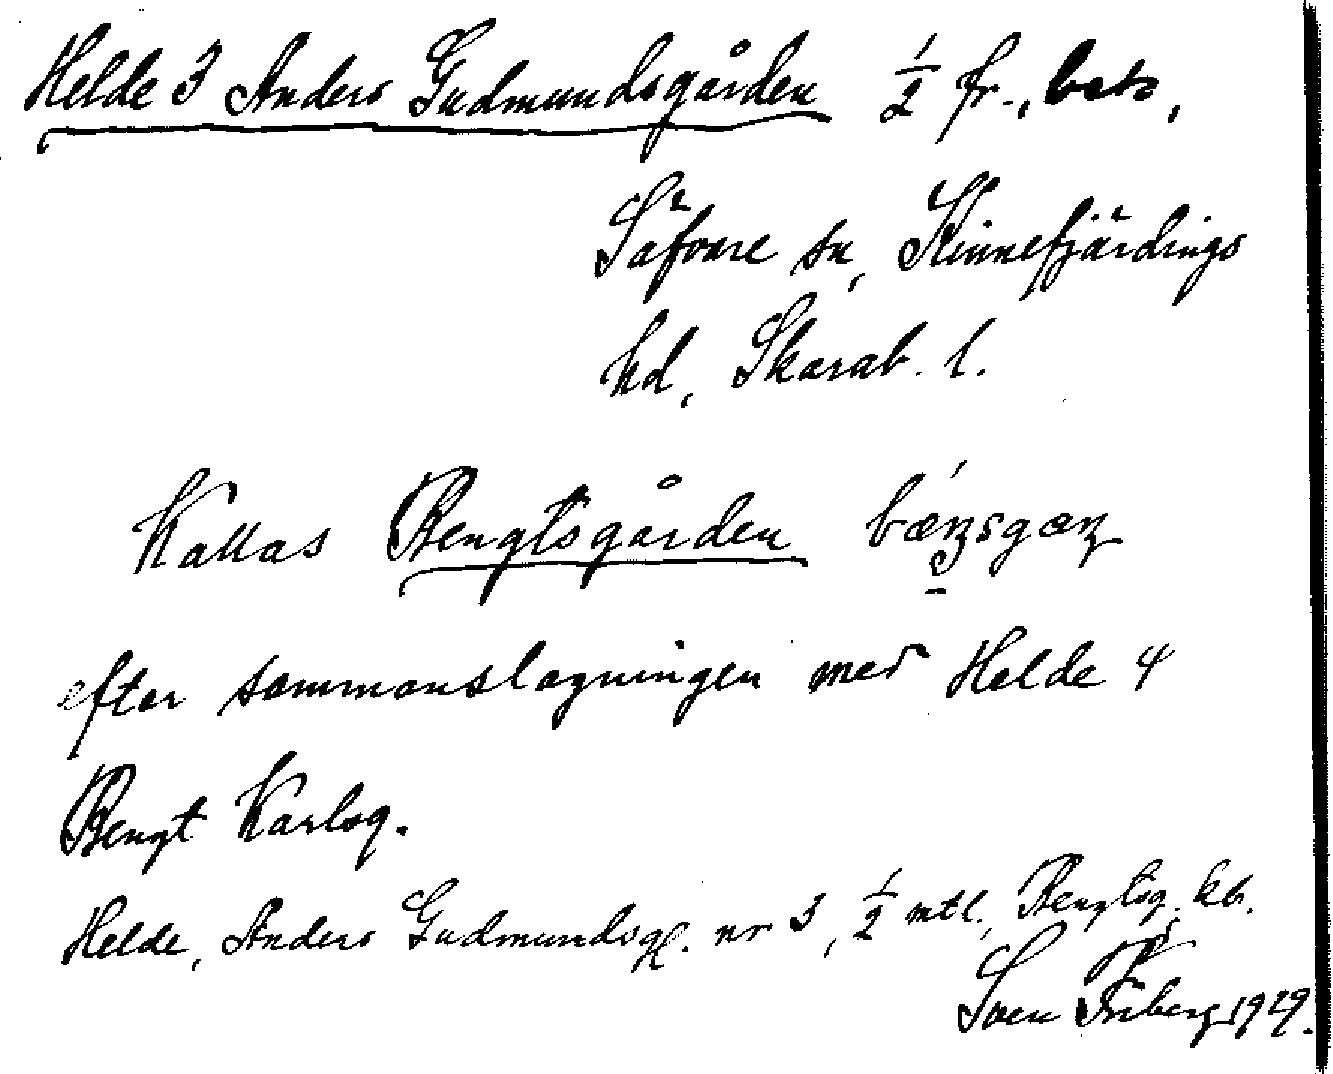 Helde 3 Anders Gudmundsgården ½ fr.,
Säfvare sn, Kinnefjärdings
hd, Skarab. l.
Kallas Bengtsgården
efter sammanslagningen med Helde 4
Bengt Karlsg.
Helde, Anders Gudmundsg. nr 3, ½ mtl, Bengtsg. kb.
Sven Friberg 1929.